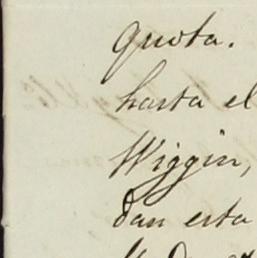 quota.
hasta el
Wiggin,
dan esta